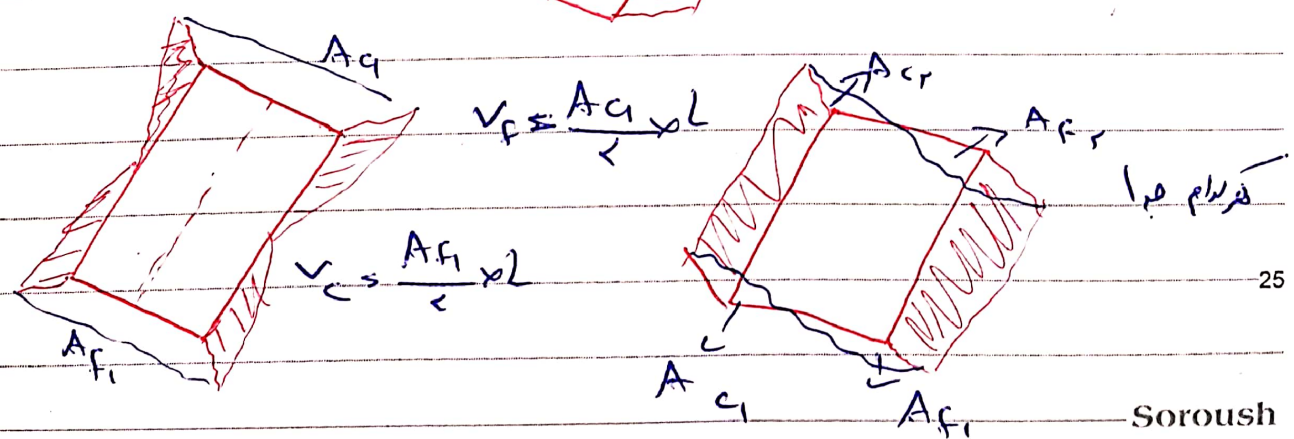 A_{C1}
V_F = \frac{A_{C1}}{۲} × L
V_C = \frac{A_{F1}}{۲} × L
A_{F1}
A_{C۲}
A_{F۲}
هر کدام جدا
25
A_{C1}
A_{F1}
Soroush